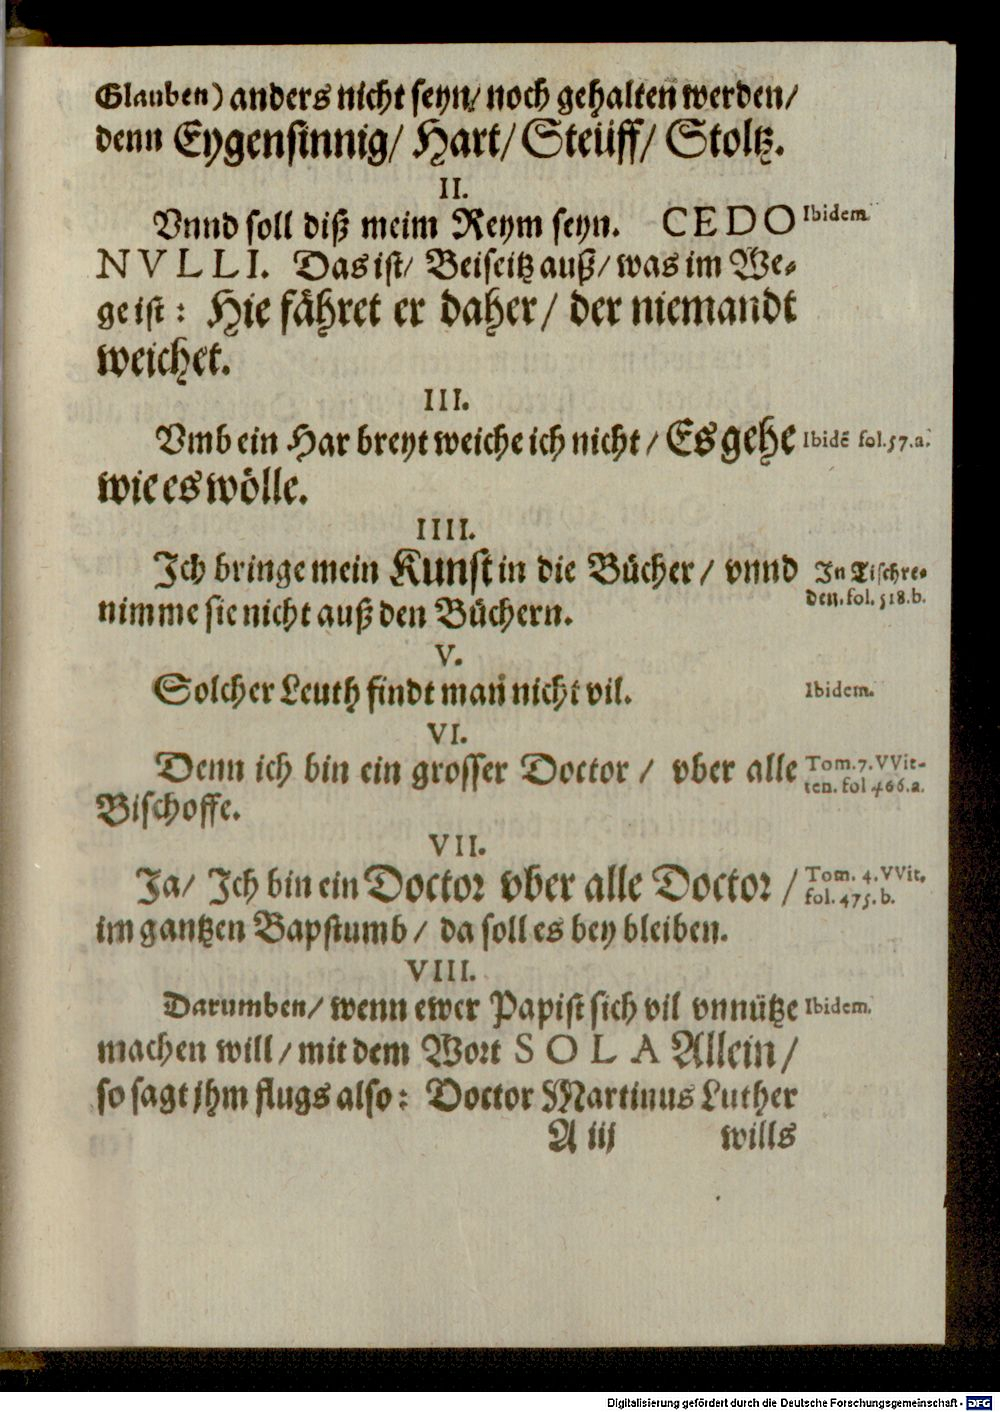 Glauben) anders nicht seyn/ noch gehalten werden/
denn Eygensinnig/ Hart/ Steüff/ Stoltz.
II.
Vnnd soll diß meim Reym seyn. CEDO Ibidem.
NVLLI. Das ist/ Beiseitz auß/ was im We-
ge ist: Hie fähret er daher/ der niemandt
weichet.
III.
Vmb ein Har breyt weiche ich nicht/ Es gehe Ibidē fol. 57. a.
wie es wölle.
IIII.
Ich bringe mein Kunst in die Bücher/ vnnd In Tischre-
nimme sie nicht auß den Büchern. den. fol. 518. b.
V.
Solcher Leuth findt man nicht vil. Ibidem.
VI.
Denn ich bin ein grosser Doctor/ vber alle Tom. 7. VVit-
Bischoffe. ten. fol 466. a.
VII.
Ja/ Ich bin ein Doctor vber alle Doctor/ Tom. 4. VVit.
im gantzen Bapstumb/ da soll es bey bleiben. fol. 475. b.
VIII.
Darumben/ wenn ewer Papist sich vil vnnütze Ibidem.
machen will/ mit dem Wort SOLA Allein/
so sagt jhm flugs also: Doctor Martinus Luther
A iij wills
Digitalisierung gefördert durch die Deutsche Forschungsgemeinschaft - DFG